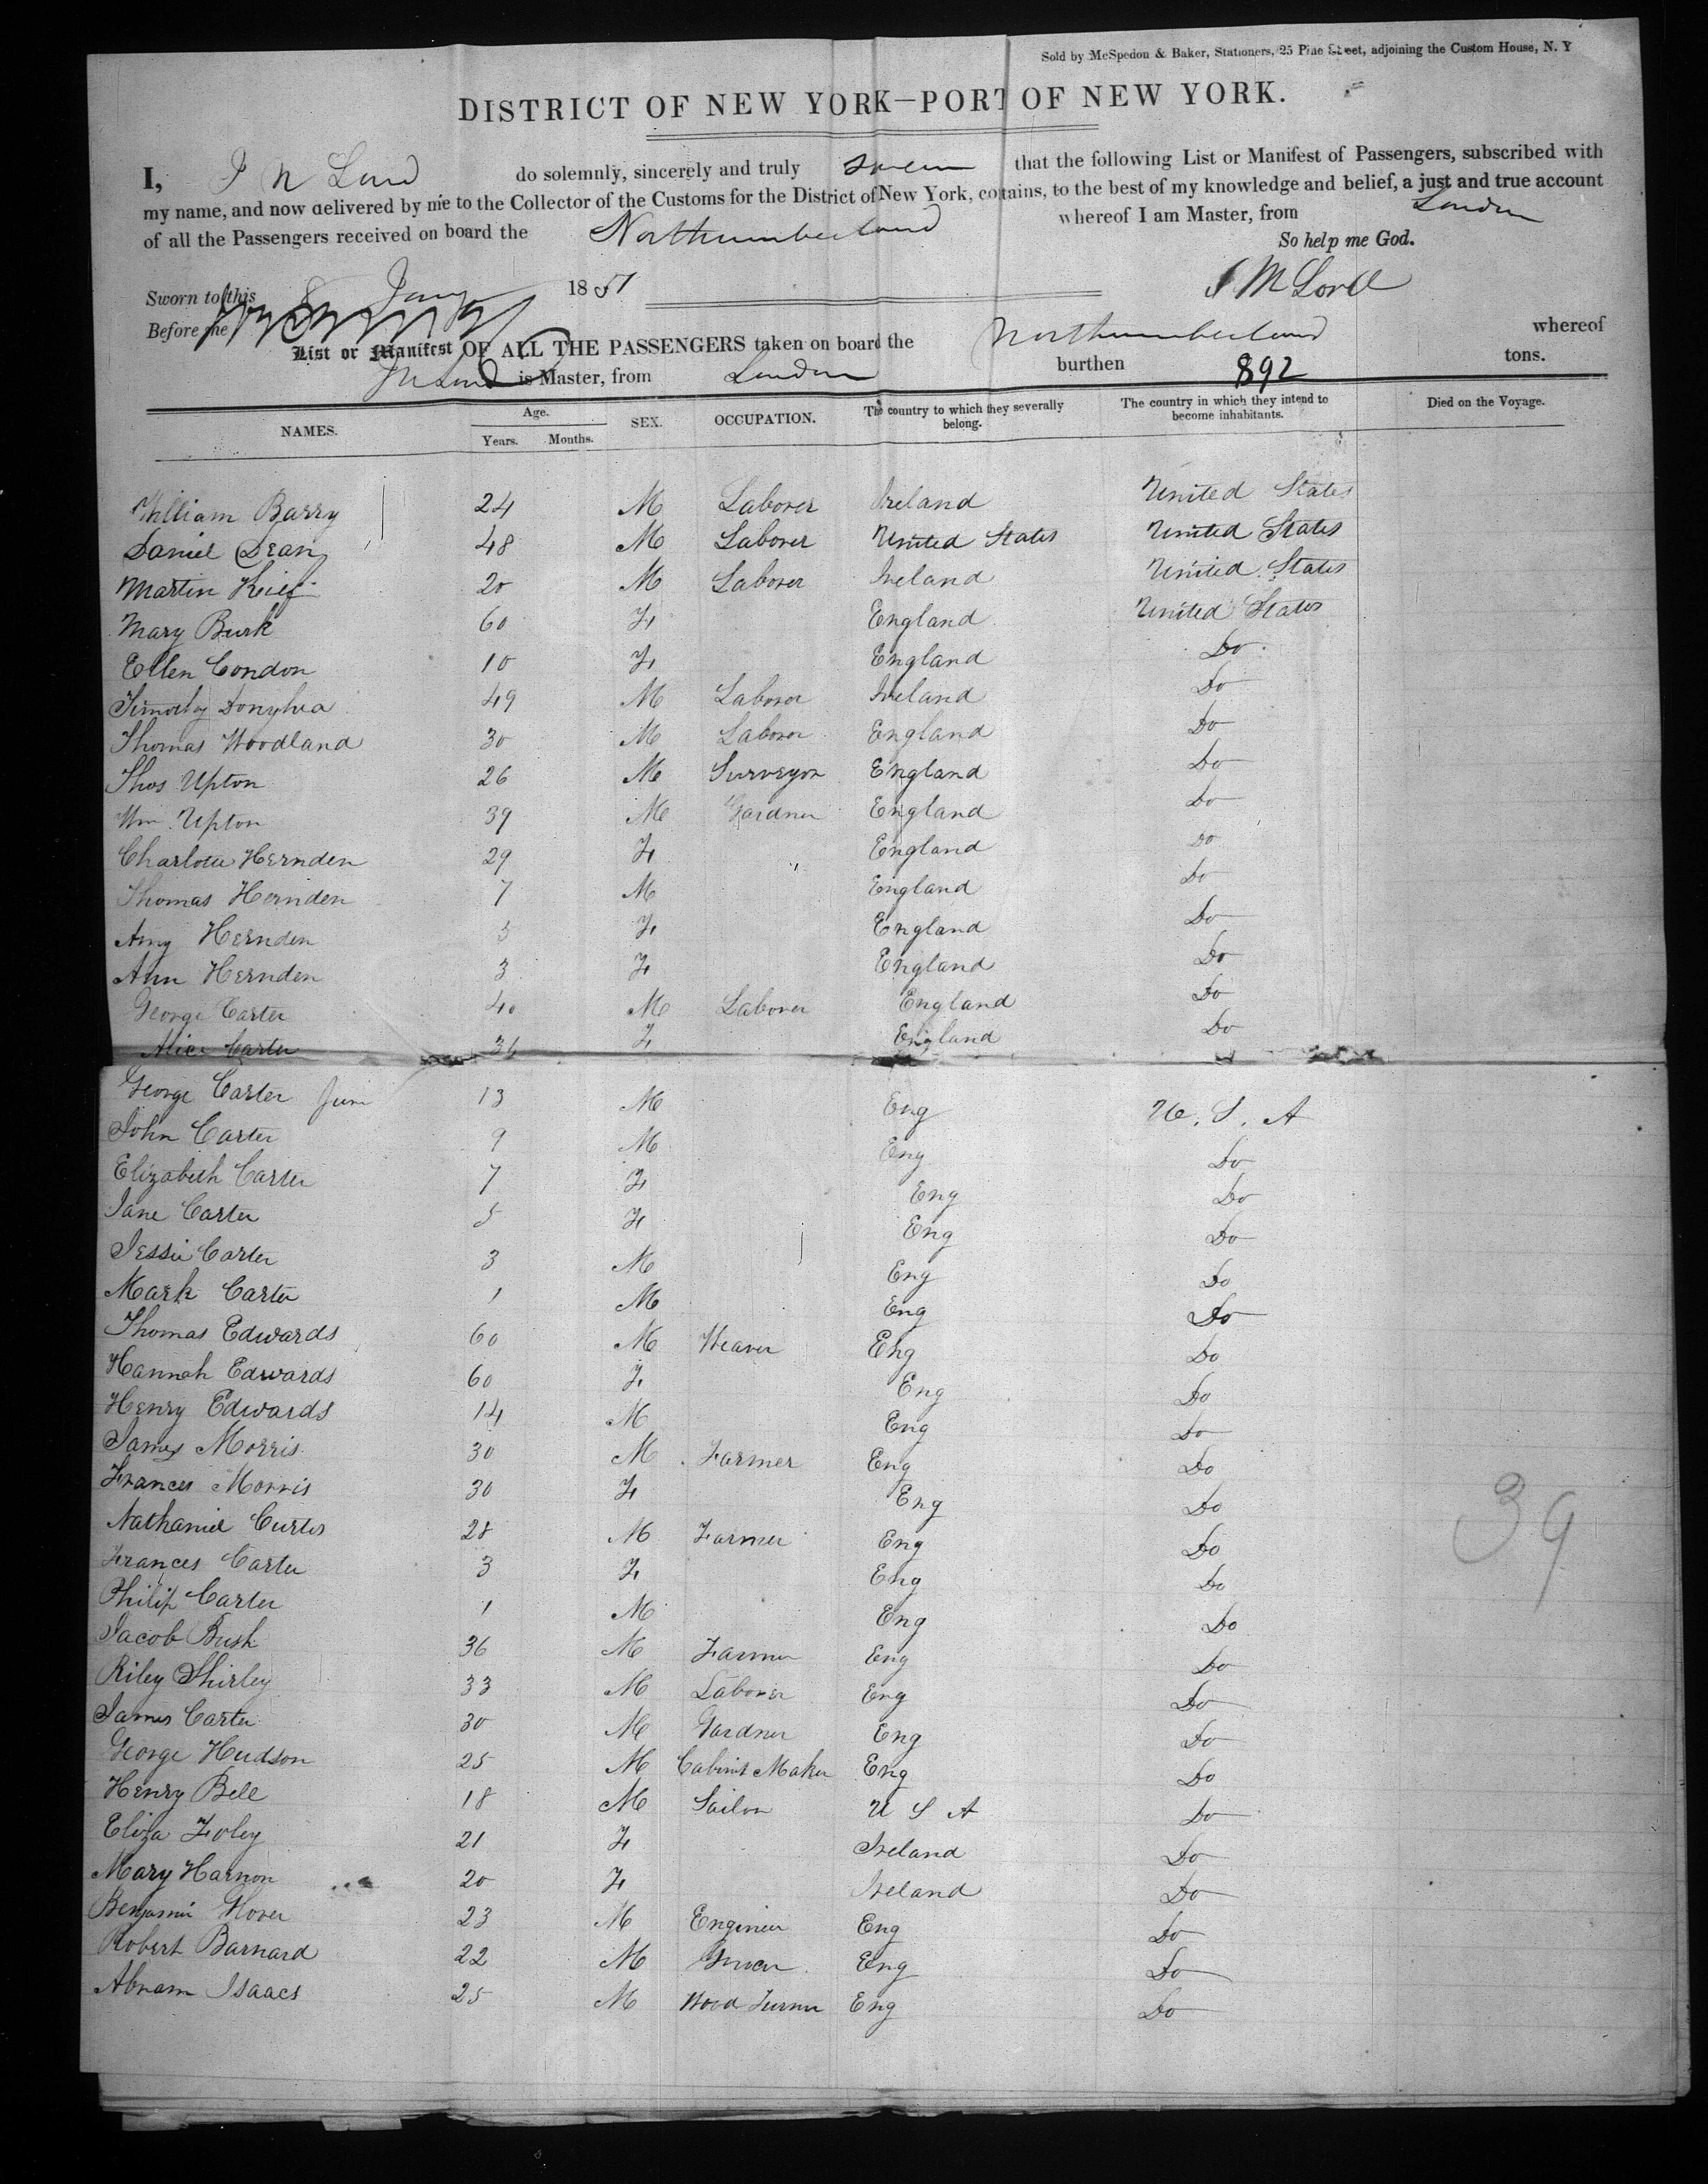 Sold by McSpedon & Baker, Stationers, 25 Pine Street, adjoining the Custom House, N. Y
DISTRICT OF NEW YORK—PORT OF NEW YORK.
I, do solemnly, sincerely and truly swear that the following List or Manifest of Passengers, subscribed with
my name, and now delivered by me to the Collector of the Customs for the District of New York, contains, to the best of my knowledge and belief, a just and true account
of all the Passengers received on board the Northumberland whereof I am Master, from London
So help me God.
Sworn to this 8 Jany 1851 J M Lord
Before me
List or Manifest OF ALL THE PASSENGERS taken on board the Northumberland whereof
is Master, from London burthen 892 tons.
NAMES. Age. Years. Months. SEX. OCCUPATION. The country to which they severally belong. The country in which they intend to become inhabitants. Died on the Voyage.
William Barry 24 M Laborer Ireland United States
Daniel Dean 48 M Laborer United States United States
Martin Keif 20 M Laborer Ireland United States
Mary Burk 60 F England United States
Ellen Condon 10 F England Do
Timothy Donyhea 49 M Laboror Ireland Do
Thomas Woodland 30 M Laboror England Do
Thos Upton 26 M Surveyor England Do
Wm. Upton 39 M Gardner England Do
Charlotte Hernden 29 F England Do
Thomas Hernden 7 M England Do
Amy Hernden 5 F England Do
Ann Hernden 3 F England Do
George Carter 40 M Laborer England Do
Alice Carter 36 F England Do
George Carter Junr 13 M Eng U. S. A
John Carter 9 M Eng Do
Elizabeth Carter 7 F Eng Do
Jane Carter 5 F Eng Do
Jessie Carter 3 M Eng Do
Mark Carter 1 M Eng Do
Thomas Edwards 60 M Weaver Eng Do
Hannah Edwards 60 F Eng Do
Henry Edwards 14 M Eng Do
James Morris 30 M Farmer Eng Do
Frances Morris 30 F Eng Do
Nathaniel Curtis 28 M Farmer Eng Do
Frances Carter 3 F Eng Do
Philip Carter 1 M Eng Do
Jacob Bush 36 M Farmer Eng Do
Riley Shirley 33 M Laborer Eng Do
James Carter 30 M Gardner Eng Do
George Hudson 25 M Cabinet Maker Eng Do
Henry Bell 18 M Sailor U S A Do
Eliza Foley 21 F Ireland Do
Mary Harnon 20 F Ireland Do
Benjamin Glover 23 M Engineer Eng Do
Robert Barnard 22 M Grocer Eng Do
Abram Isaacs 25 M Wood Turner Eng Do
39